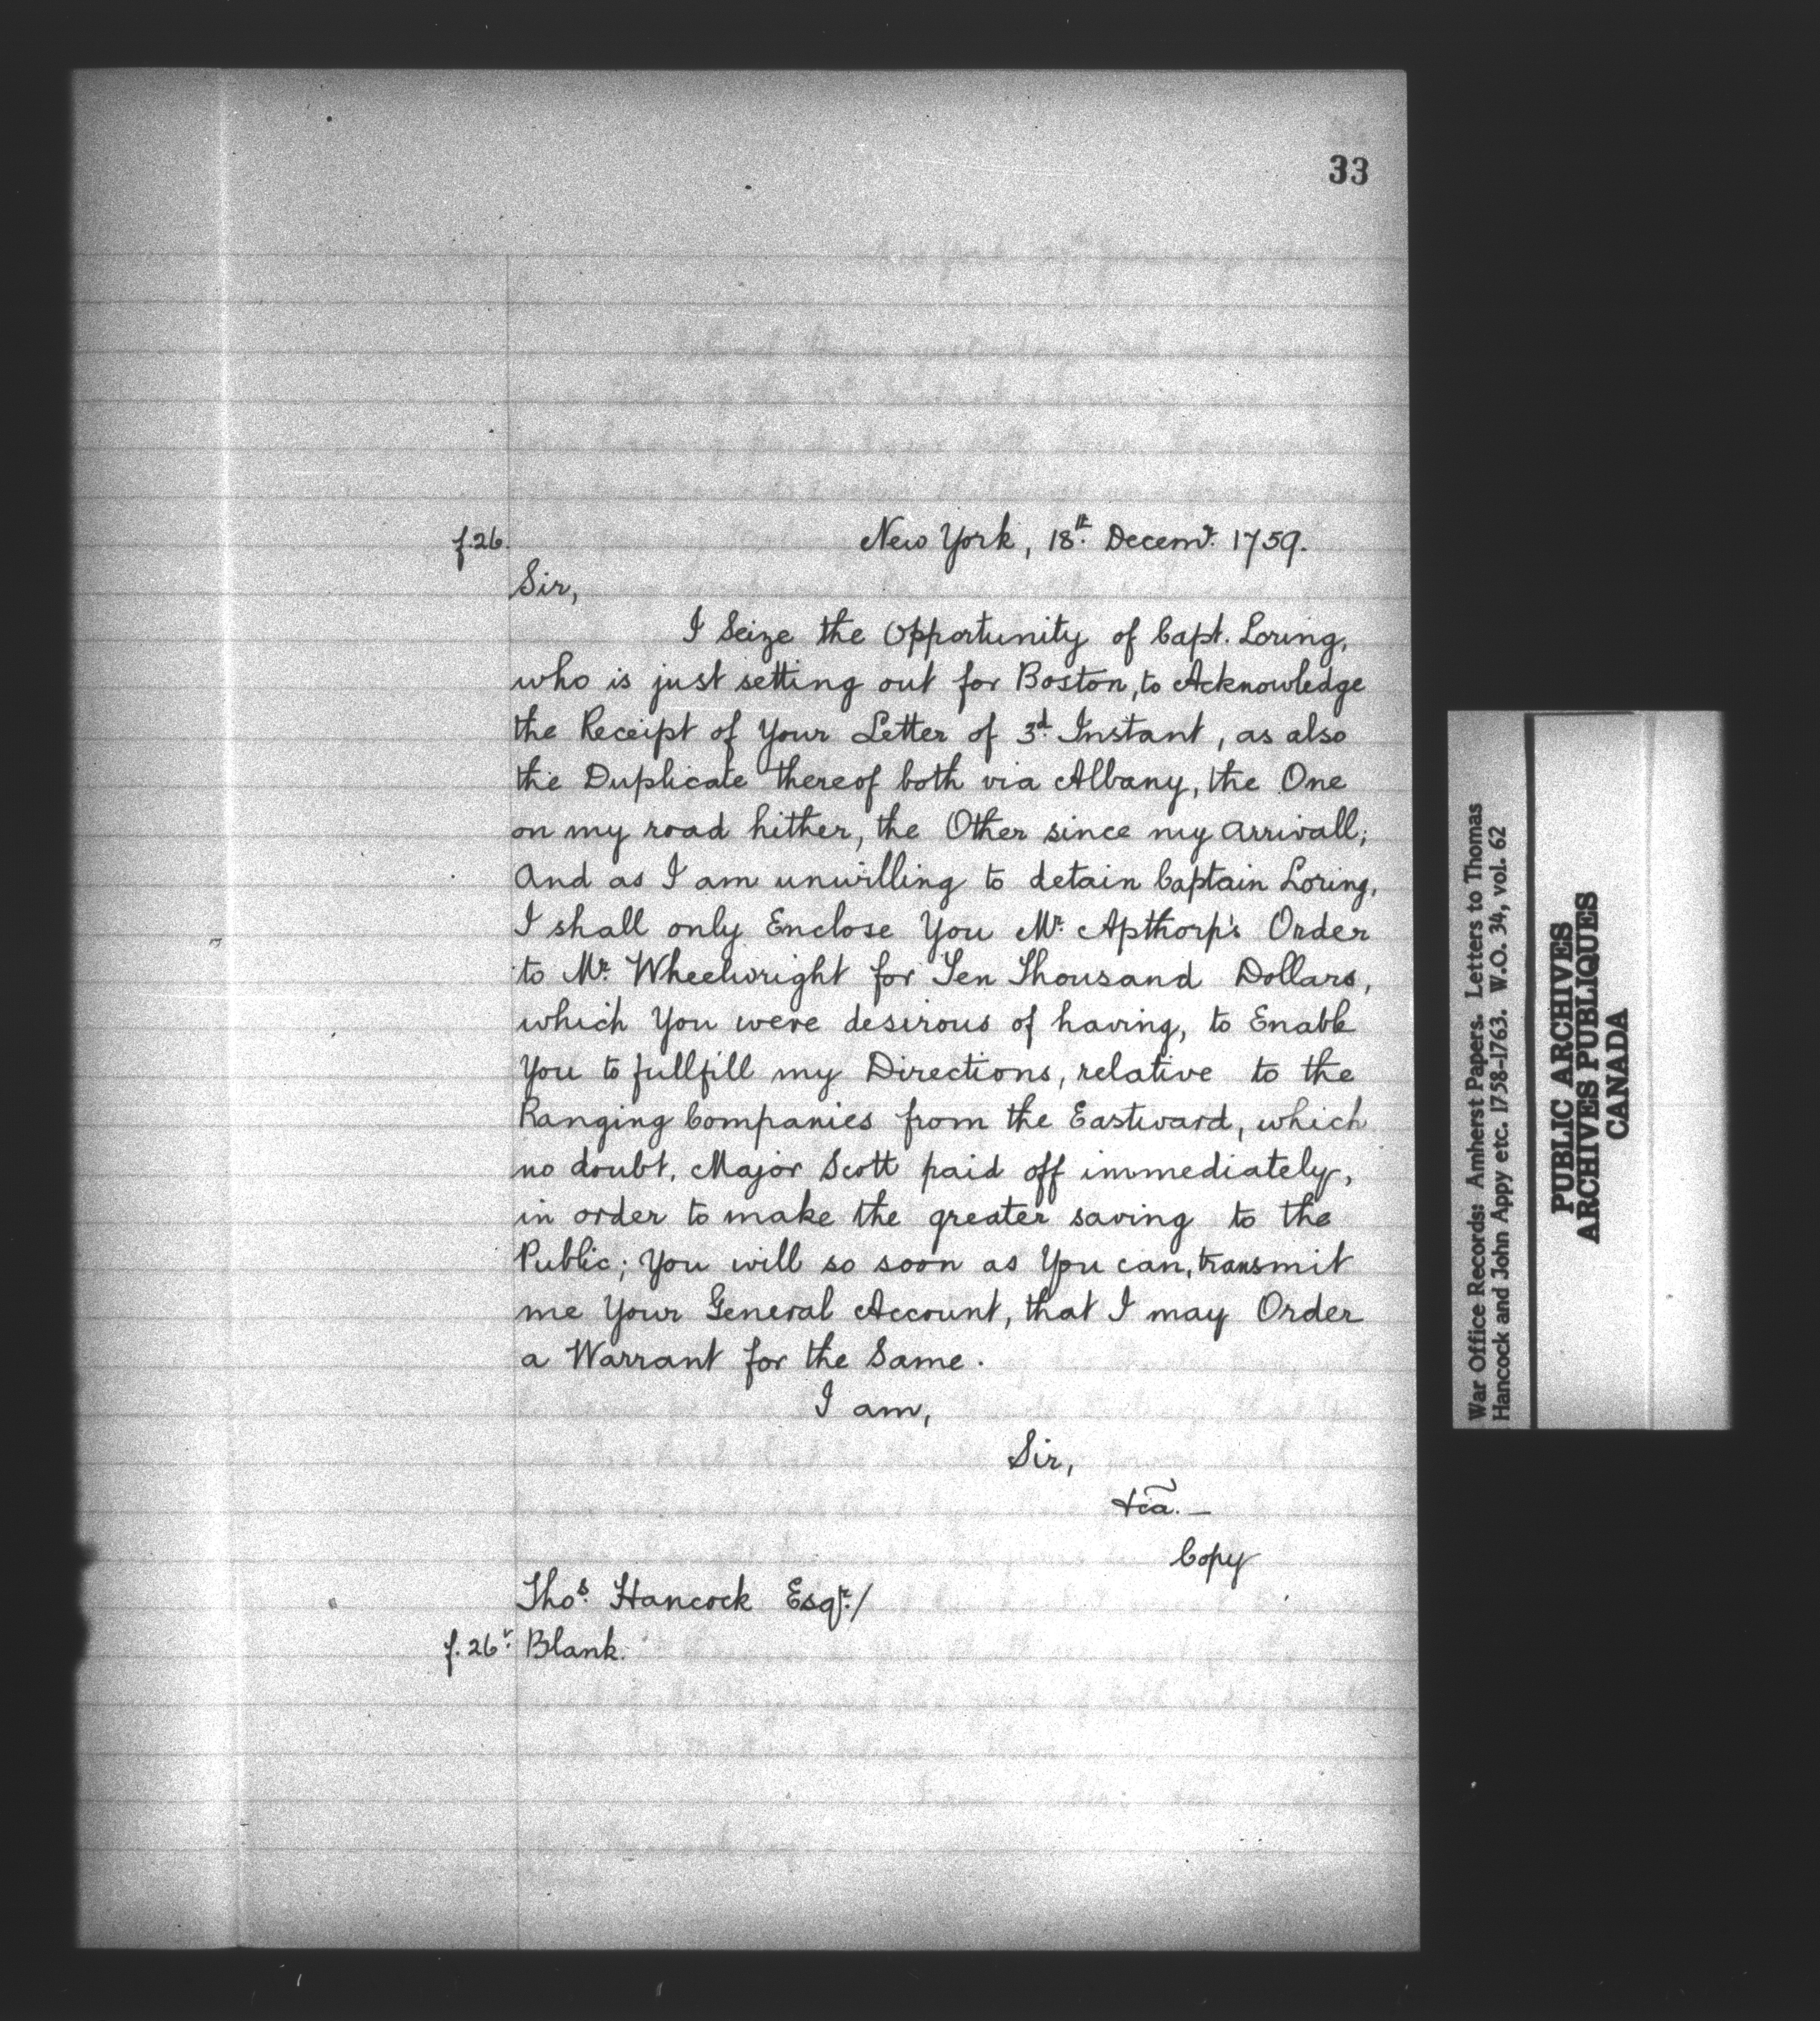 33
f.26. New York, 18th. Decemr. 1759.
Sir,
I Seize the Opportunity of Capt. Loring,
who is just setting out for Boston, to Acknowledge
the Receipt of Your Letter of 3d. Instant, as also
the Duplicate thereof both via Albany, the One
on my road hither, the Other since my arrivall;
And as I am unwilling to detain Captain Loring,
I shall only Enclose You Mr. Apthorp's Order
to Mr. Wheelwright for Ten Thousand Dollars,
which You were desirous of having, to Enable
You to fullfill my Directions, relative to the
Ranging Companies from the Eastward, which
no doubt, Major Scott paid off immediately,
in order to make the greater saving to the
Public; You will so soon as You can, transmit
me Your General Account, that I may Order
a Warrant for the Same.
I am,
Sir,
&ca. —
Copy
Thos. Hancock Esqr./
f. 26v. Blank.
War Office Records: Amherst Papers. Letters to Thomas
Hancock and John Appy etc. 1758-1763. W.O. 34, vol. 62
PUBLIC ARCHIVES
ARCHIVES PUBLIQUES
CANADA